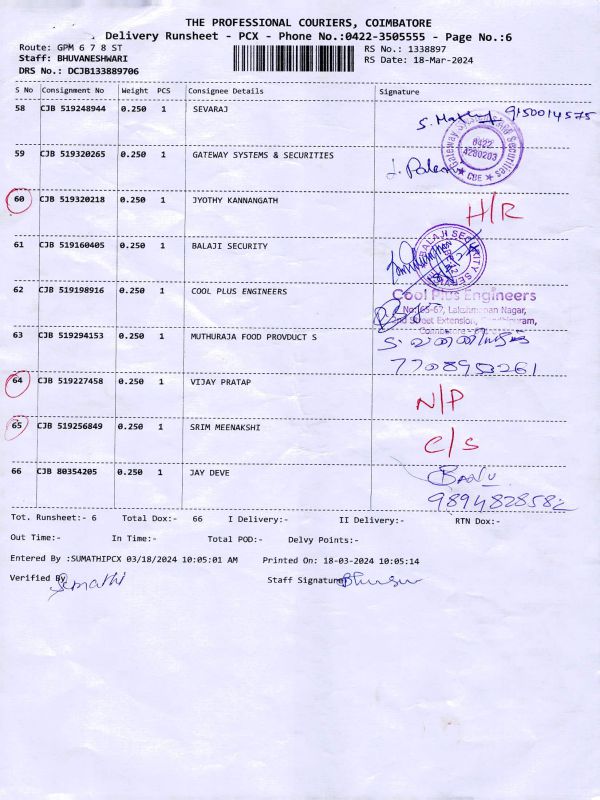 THE PROFESSIONAL COURIERS, COIMBATORE
Delivery Runsheet - PCX - Phone No.:0422-3505555 - Page No.:6
Route: GPM 6 7 8 ST RS No.: 1338897
Staff: BHUVANESHWARI RS Date: 18-Mar-2024
DRS No.: DCJB133889706
S No Consignment No Weight PCS Consignee Details Signature
58 CJB 519248944 0.250 1 SEVARAJ 9150014575
59 CJB 519320265 0.250 1 GATEWAY SYSTEMS & SECURITIES
0422
4280203
CBE
60 CJB 519320218 0.250 1 JYOTHY KANNANGATH H/R
61 CJB 519160405 0.250 1 BALAJI SECURITY
BALAJI SECURITY
62 CJB 519198916 0.250 1 COOL PLUS ENGINEERS
Cool Plus Engineers
No:65-67, Lakshmanan Nagar,
Street Extension,
63 CJB 519294153 0.250 1 MUTHURAJA FOOD PROVDUCT S
7708953261
64 CJB 519227458 0.250 1 VIJAY PRATAP N/P
65 CJB 519256849 0.250 1 SRIM MEENAKSHI C/S
66 CJB 80354205 0.250 1 JAY DEVE Banu
9894828582
Tot. Runsheet:- 6 Total Dox:- 66 I Delivery:- II Delivery:- RTN Dox:-
Out Time:- In Time:- Total POD:- Delvy Points:-
Entered By :SUMATHIPCX 03/18/2024 10:05:01 AM Printed On: 18-03-2024 10:05:14
Verified By Sumathi Staff Signature